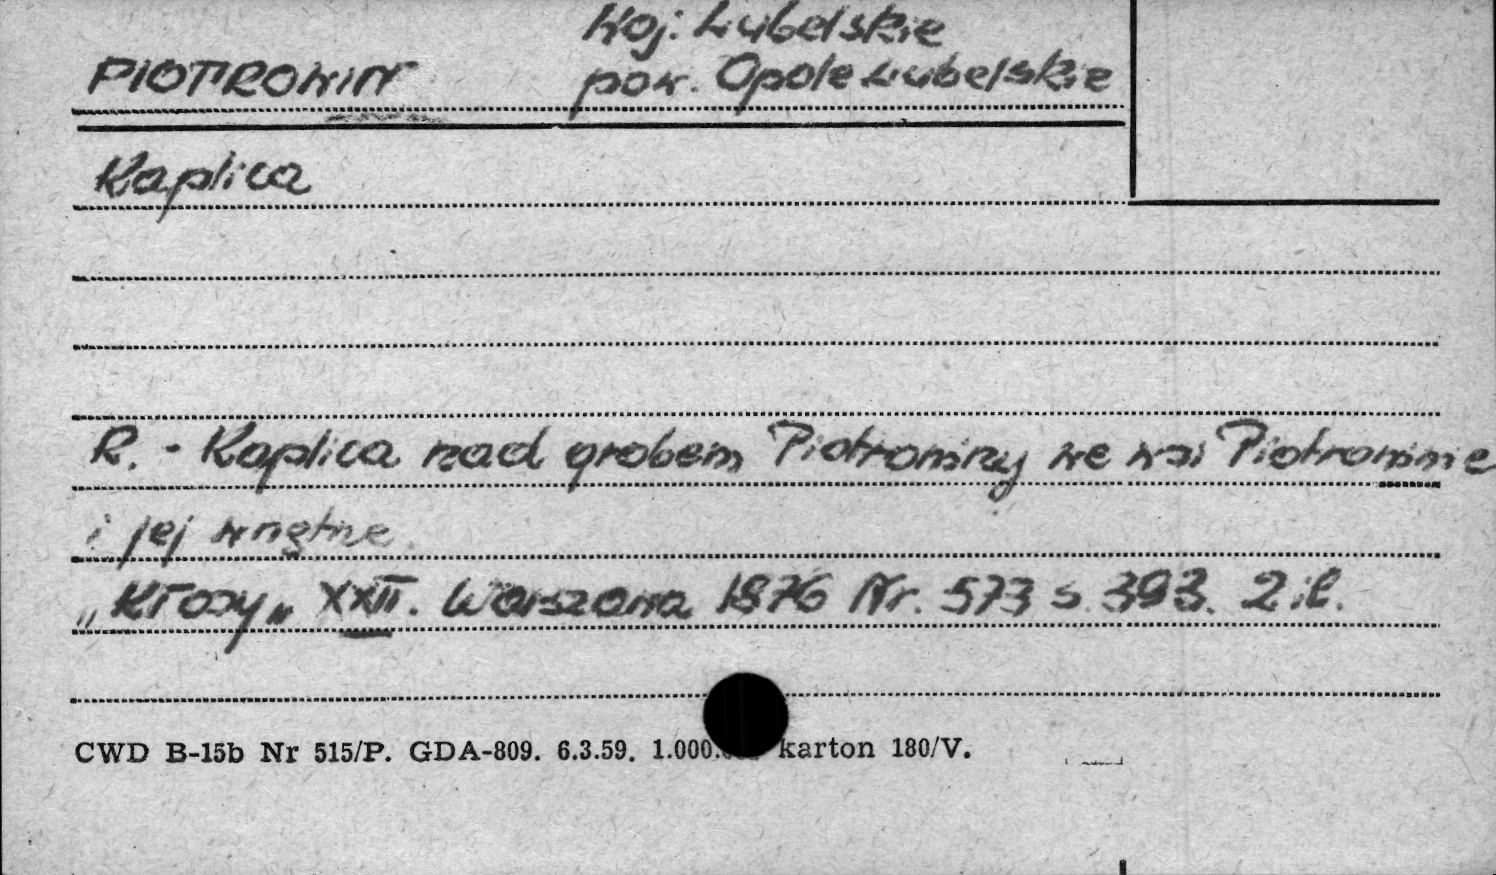 Woj. Lubelskie
PIOTROWIN pow. Opole Lubelskie
Kaplica
R. - Kaplica nad grobem Piotrowiny we wsi Piotrowinie
i jej wnętrze.
„Kłosy„ XXII. Warszawa 1876 Nr. 573 s. 393. 2 il.
CWD B-15b Nr 515/P. GDA-809. 6.3.59. 1.000. karton 180/V.